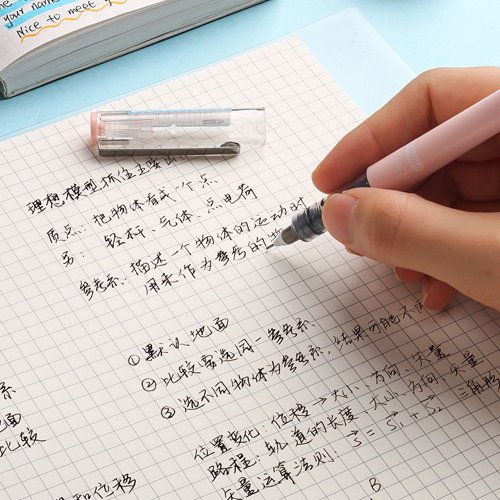 your name
Nice to meet y
理想模型抓住主要
质点: 把物体看成一个点
另: 轻杆、气体、点电荷
参考系: 描述一个物体的运动时
用来作为参考的物
①默认地面
②比较要选同一参考系
③选不同物体为参考系, 结果可能不同
位置变化: 位移 → 大小、方向、矢量
路程: 轨道的长度 大小、方向、矢量
矢量运算法则: S = S₁ + S₂ 三角形
B
系
面
比较
和位移